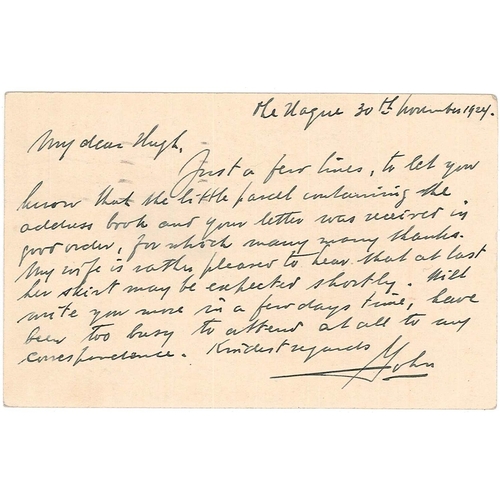 The Hague 30th November 1924.
My dear Hugh,
Just a few lines, to let you
know that the little parcel containing the
address book and your letter was received in
good order, for which many many thanks.
My wife is rather pleased to hear that at last
her skirt may be expected shortly. Will
write you more in a few days time, have
been too busy to attend at all to any
correspondence. Kindest regards
John